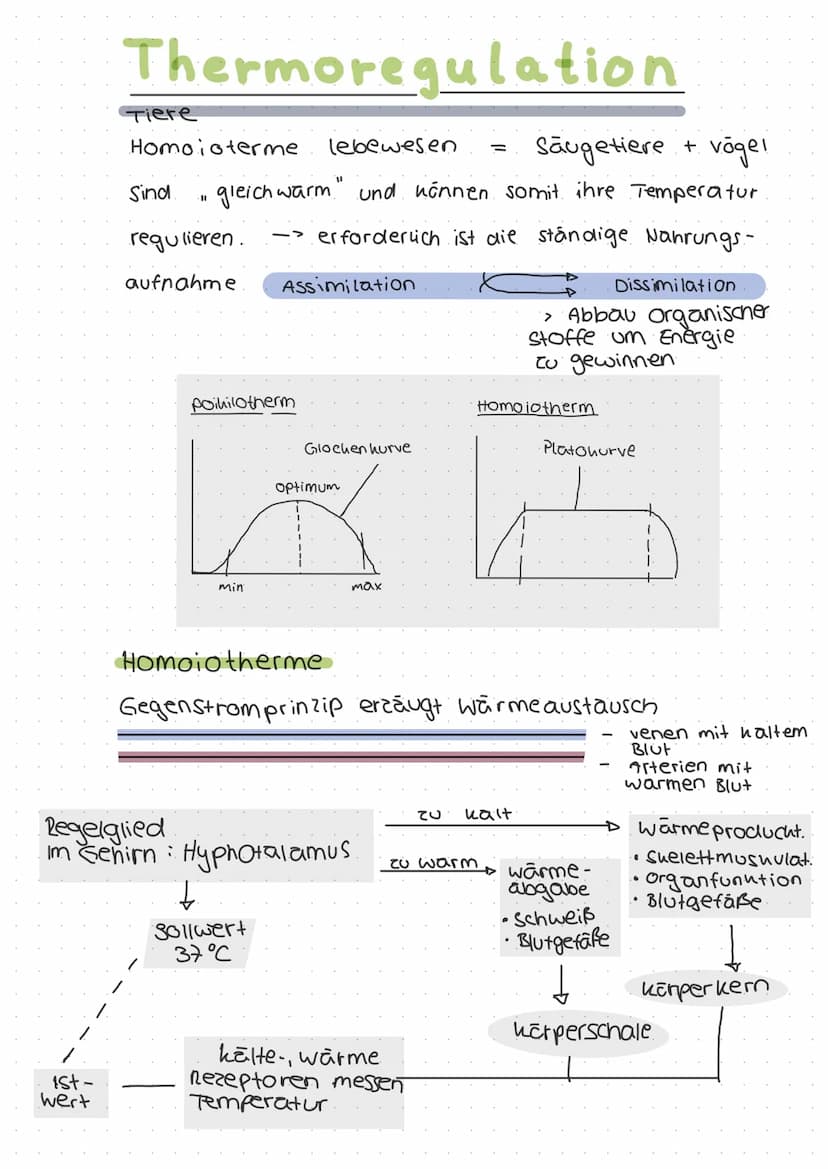 Thermoregulation
Tiere
Homoioterme lebewesen = Säugetiere + vögel
sind „gleichwarm" und können somit ihre Temperatur
regulieren. —> erforderlich ist die ständige Nahrungs-
aufnahme Assimilation Dissimilation
> Abbau organischer
stoffe um Energie
zu gewinnen
poikilotherm
Glockenkurve
optimum
min max
Homoiotherm
Platokurve
Homoiotherme
Gegenstromprinzip erzäugt wärmeaustausch
- venen mit kaltem
Blut
- Arterien mit
warmen Blut
Regelglied
im Gehirn : Hyphotalamus
zu kalt
zu warm
wärmeproducht.
• skelettmuskulat.
• organfunktion
• Blutgefäße
wärme-
abgabe
• schweiß
• Blutgefäße
sollwert
37°C
körperkern
körperschale
kälte-, wärme
Rezeptoren messen
Temperatur
ist-
wert